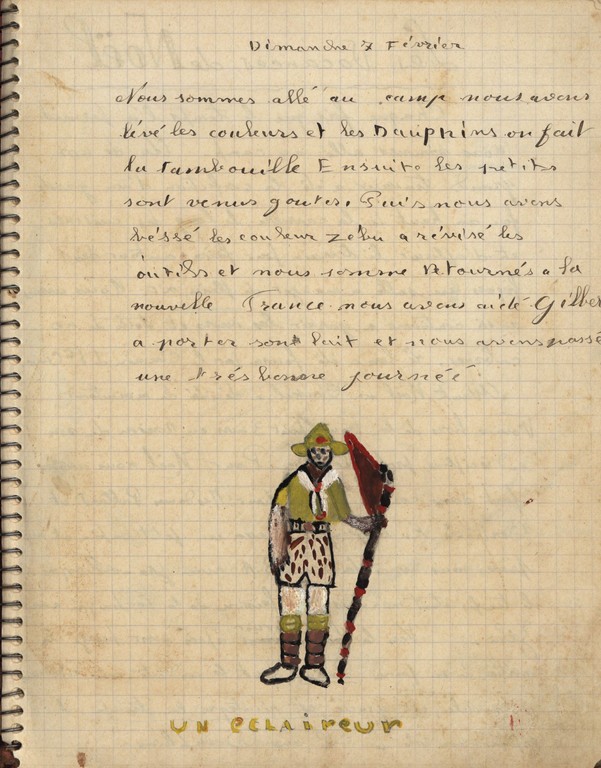 Dimanche 7 Février
Nous sommes allé au camp nous avons
lévé les couleurs et les Dauphins on fait
la tambouille Ensuite les petits
sont venus gouter. Puis nous avons
béssé les couleur zébu a révisé les
outils et nous somme retournés a la
nouvelle France nous avons aidé Gilber
a porter sont lait et nous avons passé
une trés bonne journéé
UN ECLAireur